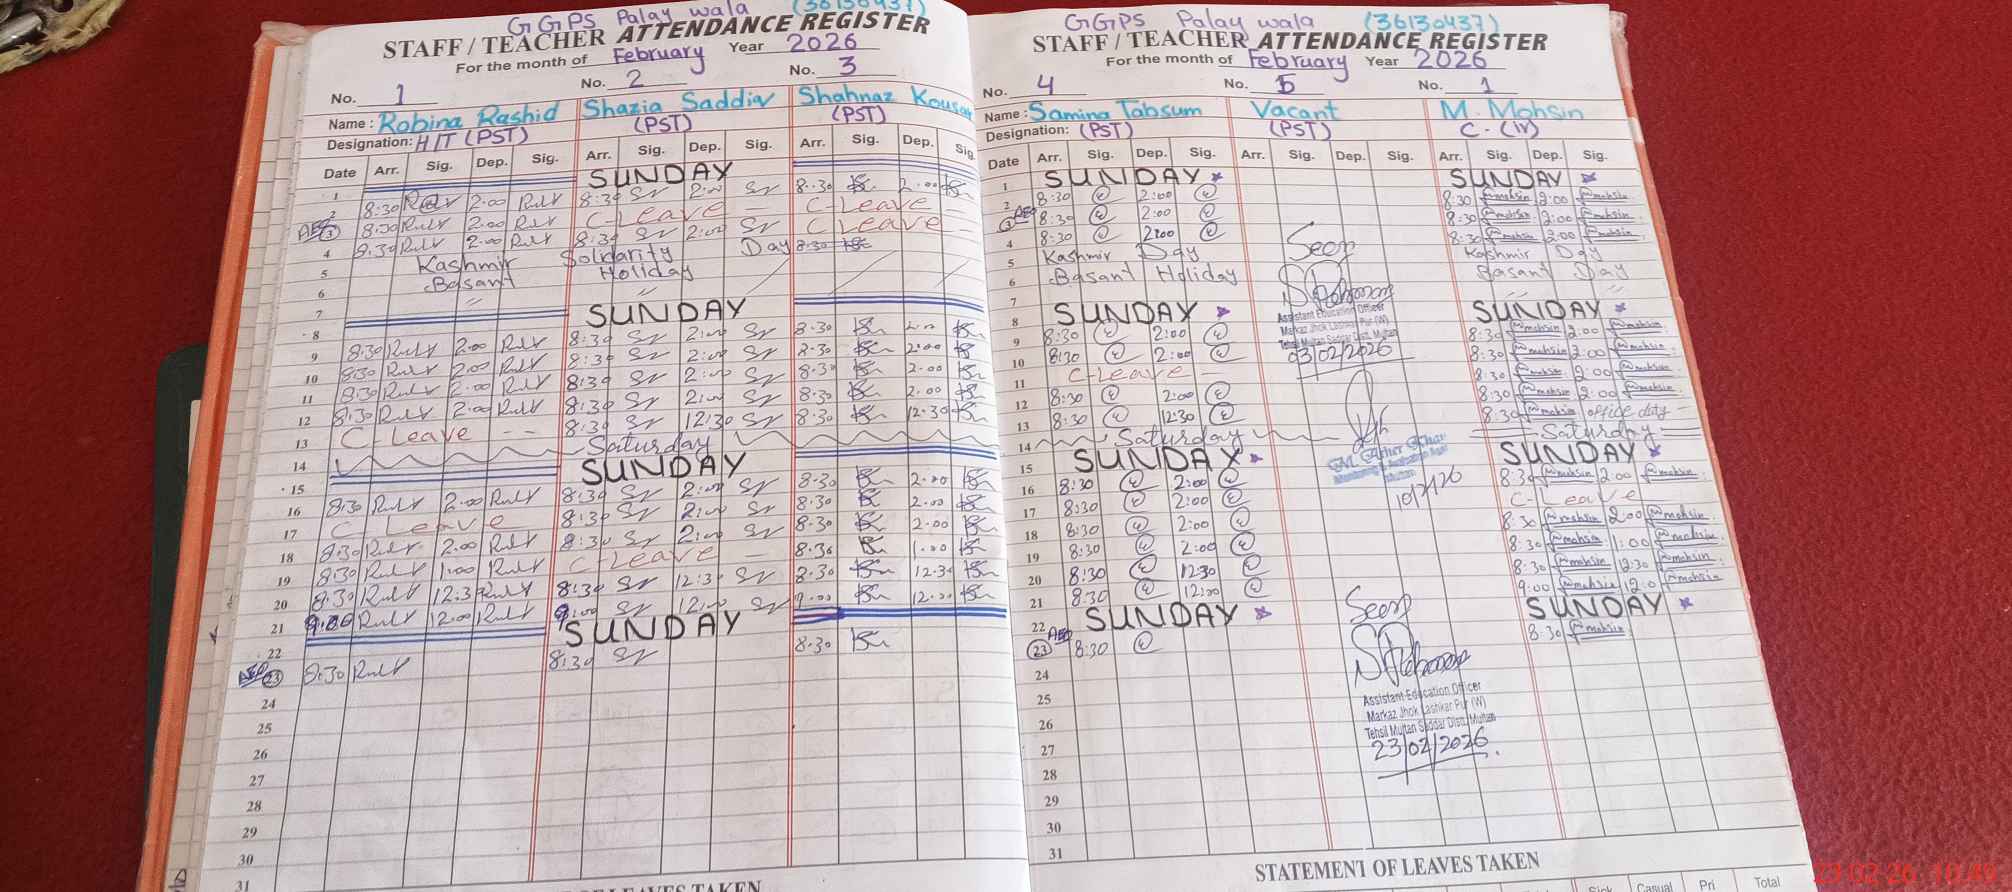 GGPS Palay wala (36130437)
STAFF / TEACHER ATTENDANCE REGISTER
For the month of February Year 2026
No. 1 No. 2 No. 3
Name : Robina Rashid Shazia Saddiq Shahnaz Kousar
Designation: H/T (PST) (PST) (PST)
Date Arr. Sig. Dep. Sig. Arr. Sig. Dep. Sig. Arr. Sig. Dep. Sig.
1 SUNDAY
2 8:30 2:00 8:30 2:00 8:30 2:00
3 8:30 2:00 C-Leave C-Leave
4 8:30 2:00 8:30 2:00 C Leave
5 Kashmir Solidarity Day 8:30
6 Basant Holiday
7 " "
8 SUNDAY
9 8:30 2:00 8:30 2:00 8:30 2:00
10 8:30 2:00 8:30 2:00 8:30 2:00
11 8:30 2:00 8:30 2:00 8:30 2:00
12 8:30 2:00 8:30 2:00 8:30 2:00
13 C-Leave -- 8:30 12:30 8:30 12:30
14 Saturday
15 SUNDAY
16 8:30 2:00 8:30 2:00 8:30 2:00
17 C Leave 8:30 2:00 8:30 2:00
18 8:30 2:00 8:30 2:00 8:30 2:00
19 8:30 1:00 C-Leave — 8:30 1:00
20 8:30 12:3 8:30 12:30 8:30 12:30
21 9:00 12:00 9:00 12:00 9:00 12:00
22 SUNDAY
23 8:30 8:30 8:30
24
25
26
27
28
29
30
31
LEAVES TAKEN
GGPS Palay wala (36130437)
STAFF / TEACHER ATTENDANCE REGISTER
For the month of February Year 2026
No. 4 No. 5 No. 1
Name : Samina Tabsum Vacant M. Mohsin
Designation: (PST) (PST) C-(IV)
Date Arr. Sig. Dep. Sig. Arr. Sig. Dep. Sig. Arr. Sig. Dep. Sig.
1 SUNDAY SUNDAY
2 8:30 2:00 8:30 @mohsin 2:00 @mohsin
3 8:30 2:00 8:30 @mohsin 2:00 @mohsin
4 8:30 2:00 8:30 @mohsin 2:00 @mohsin
5 Kashmir Day Kashmir Day
6 Basant Holiday Basant Day
7
8 SUNDAY SUNDAY
9 8:30 2:00 8:30 @mohsin 2:00 @mohsin
10 8:30 2:00 8:30 @mohsin 2:00 @mohsin
11 C-Leave — 8:30 @mohsin 2:00 @mohsin
12 8:30 2:00 8:30 @mohsin 2:00 @mohsin
13 8:30 12:30 8:30 @mohsin office duty —
14 Saturday Saturday
15 SUNDAY SUNDAY
16 8:30 2:00 8:30 @mohsin 2:00 @mohsin
17 8:30 2:00 C-Leave
18 8:30 2:00 8:30 @mohsin 2:00 @mohsin
19 8:30 2:00 8:30 @mohsin 1:00 @mohsin
20 8:30 12:30 8:30 @mohsin 12:30 @mohsin
21 8:30 12:00 9:00 @mohsin 12:0 @mohsin
22 SUNDAY SUNDAY
23 8:30 8:30 @mohsin
24
25
26
27
28
29
30
31
Seen
Assistant Education Officer
Markaz Jhok Lashkar Pur (W)
Tehsil Multan Saddar Distt. Multan
03/02/2026
10/2/26
Seen
Assistant Education Officer
Markaz Jhok Lashkar Pur (W)
Tehsil Multan Saddar Distt. Multan
23/02/2026
STATEMENT OF LEAVES TAKEN
Sick Casual Pri Total
23-02-26 10:49